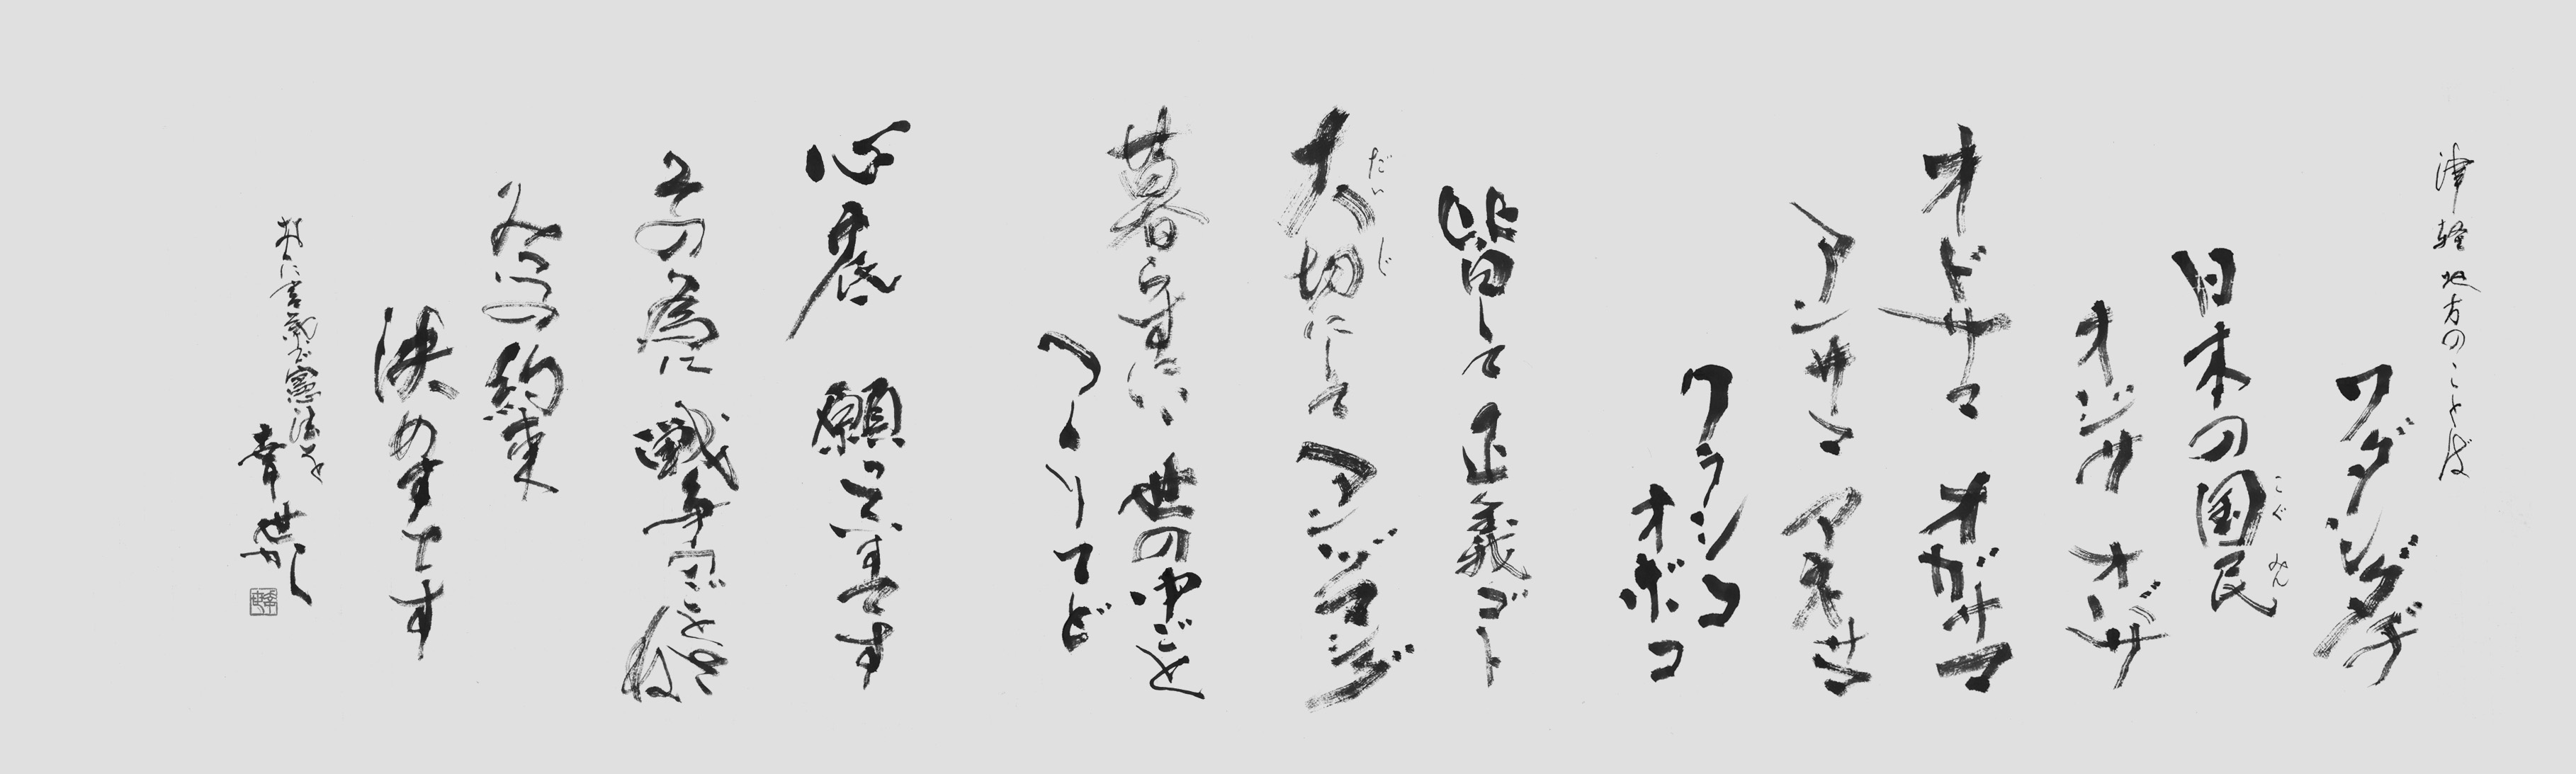 津軽地方のことば
ワダシダヂ
日本の国民
こぐ みん
オジサ オバサ
オドサマ オガサマ
アンサマ アネサマ
ワラシコ
オボコ
皆して正義ゴト
大切にして アンヅマシグ
だい じ
暮らすにいい 世の中ごと
つくりてど
心底 願っています
その為に 戦争
約束
決めすてす
お国言葉で憲法を
幸世かく